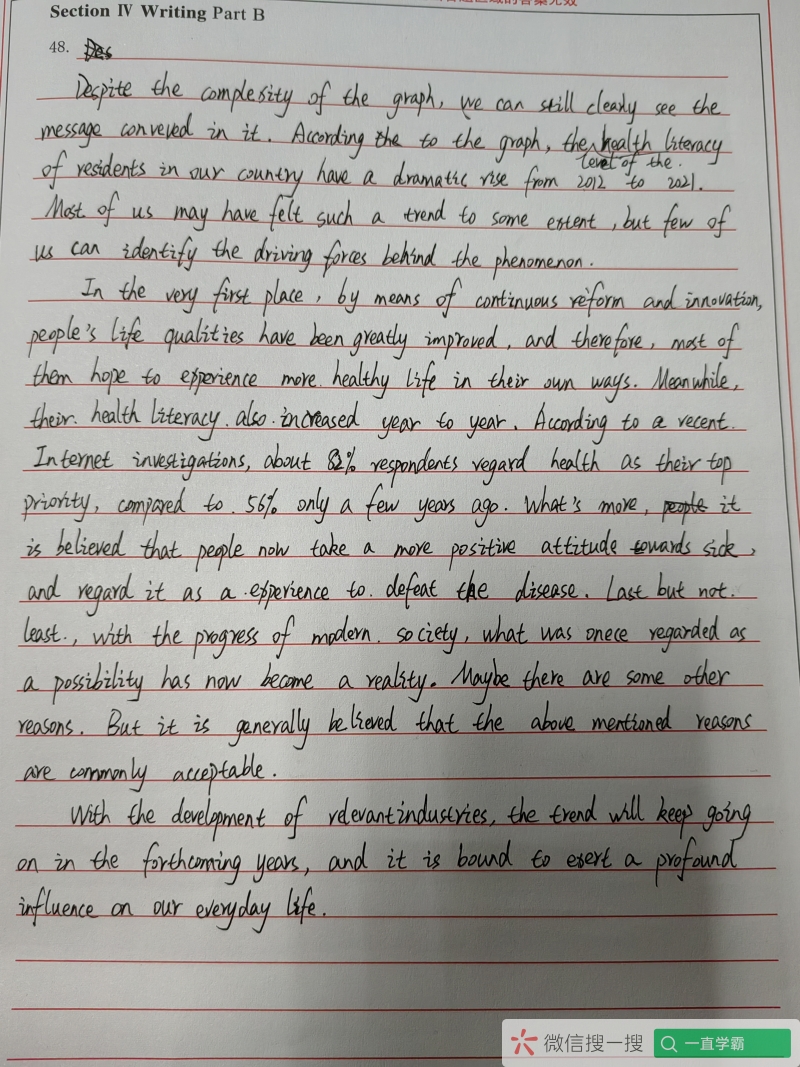 Section IV Writing Part B
48.
Despite the complesity of the graph, we can still clearly see the
message conveved in it. According the to the graph, the health literacy
level of the
of residents in our country have a dramatic rise from 2012 to 2021.
Most of us may have felt such a trend to some extent, but few of
us can identify the driving forces behind the phenomenon.
In the very first place, by means of continuous reform and innovation,
people's life qualities have been greatly improved, and therefore, most of
them hope to experience more healthy life in their own ways. Meanwhile,
their health literacy also increased year to year. According to a recent
Internet investigations, about 82% respondents regard health as their top
priority, compared to 56% only a few years ago. What's more, people it
is believed that people now take a more positive attitude towards sick,
and regard it as a experience to defeat the disease. Last but not
least., with the progress of modern society, what was onece regarded as
a possibility has now become a reality. Maybe there are some other
reasons. But it is generally believed that the above mentioned reasons
are commonly acceptable.
With the development of relevant industries, the trend will keep going
on in the forthcoming years, and it is bound to exert a profound
influence on our everyday life.
微信搜一搜
一直学霸